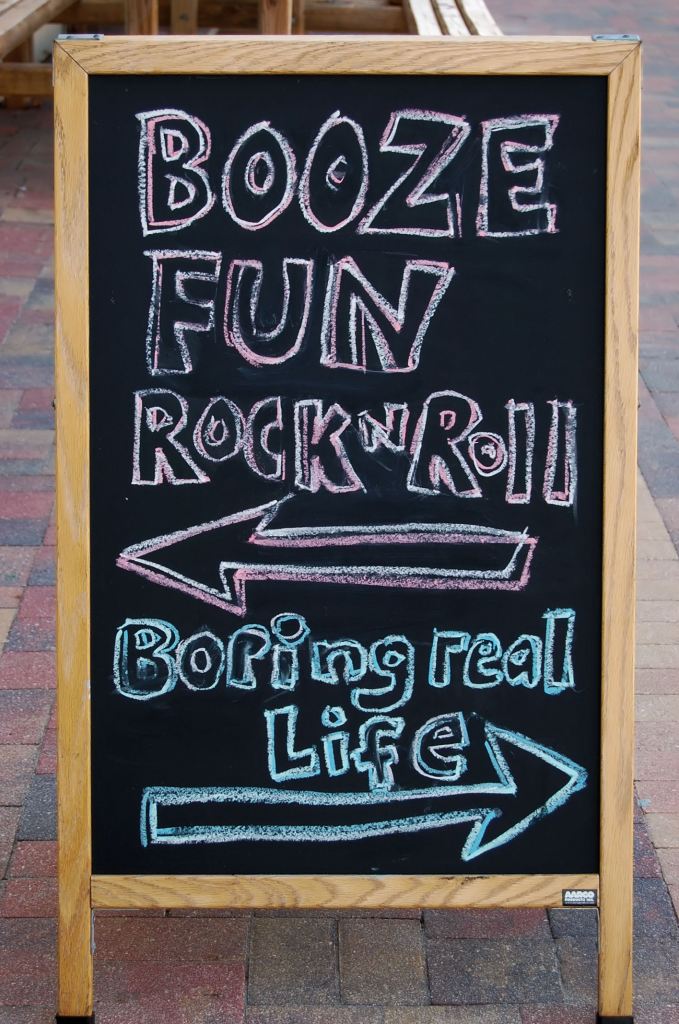 BOOZE
FUN
ROCK N Roll
Boring real
Life
AARCO
PRODUCTS INC.